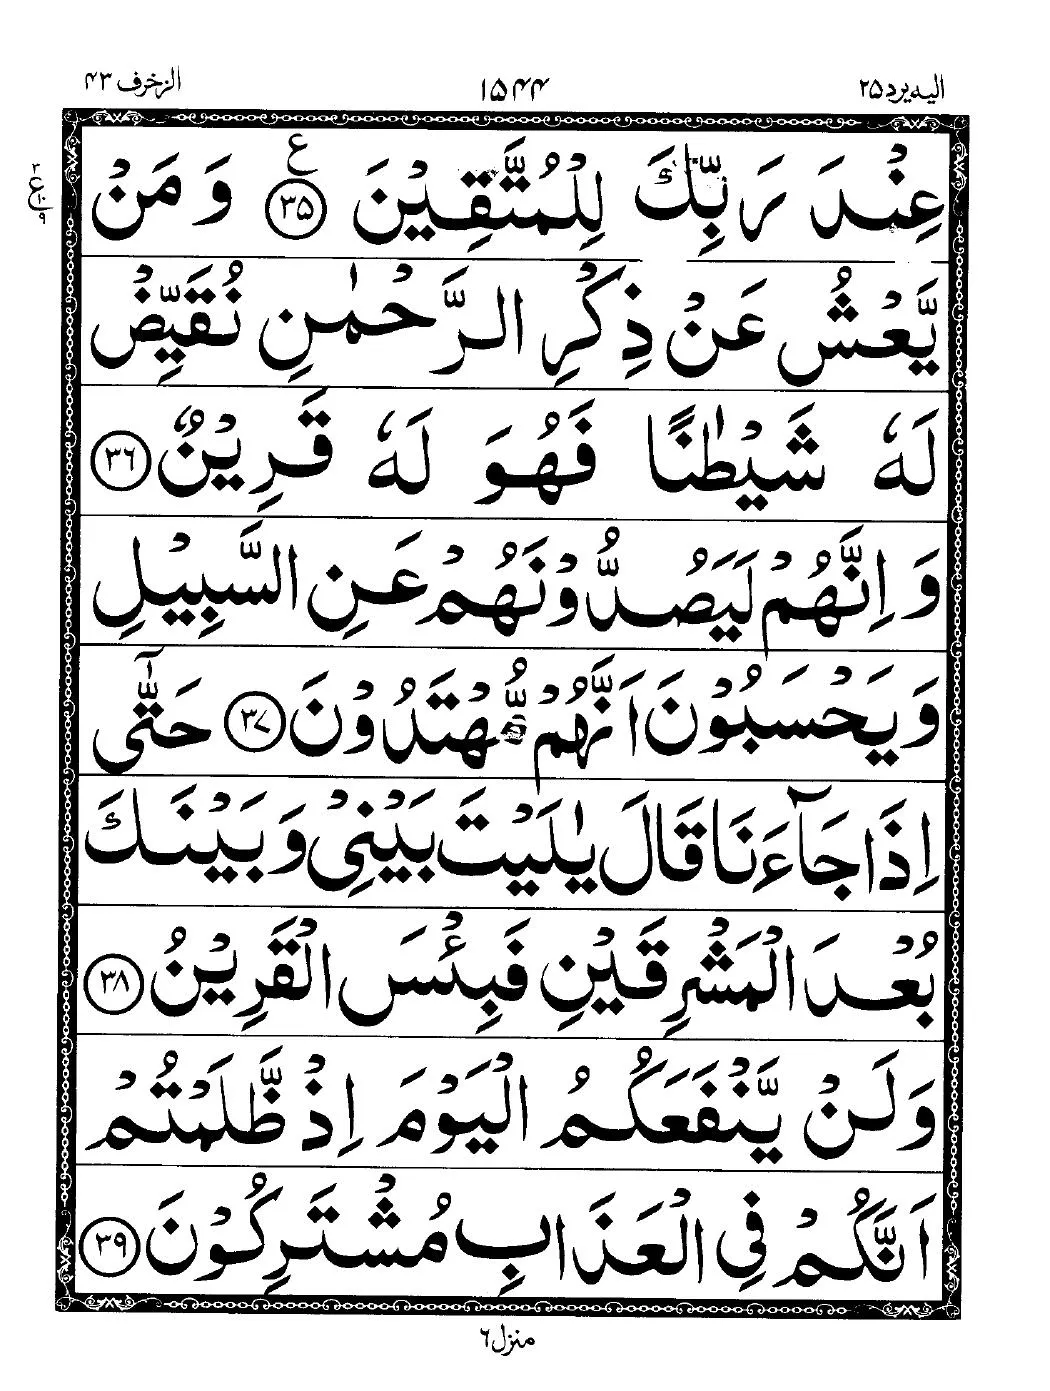 الیه یرد ۲۵
۱۵۴۴
الزخرف ۴۳
عِنْدَ رَبِّكَ لِلْمُتَّقِيْنَ ﴿۳۵﴾ ع وَ مَنْ
۳
ع
۱۰
۹
يَّعْشُ عَنْ ذِكْرِ الرَّحْمٰنِ نُقَيِّضْ
لَهٗ شَيْطٰنًا فَهُوَ لَهٗ قَرِيْنٌ ﴿۳۶﴾
وَ اِنَّهُمْ لَيَصُدُّوْنَهُمْ عَنِ السَّبِيْلِ
وَ يَحْسَبُوْنَ اَنَّهُمْ مُّهْتَدُوْنَ ﴿۳۷﴾ حَتّٰۤى
اِذَا جَآءَنَا قَالَ يٰلَيْتَ بَيْنِيْ وَ بَيْنَكَ
بُعْدَ الْمَشْرِقَيْنِ فَبِئْسَ الْقَرِيْنُ ﴿۳۸﴾
وَ لَنْ يَّنْفَعَكُمُ الْيَوْمَ اِذْ ظَّلَمْتُمْ
اَنَّكُمْ فِي الْعَذَابِ مُشْتَرِكُوْنَ ﴿۳۹﴾
منزل ۶